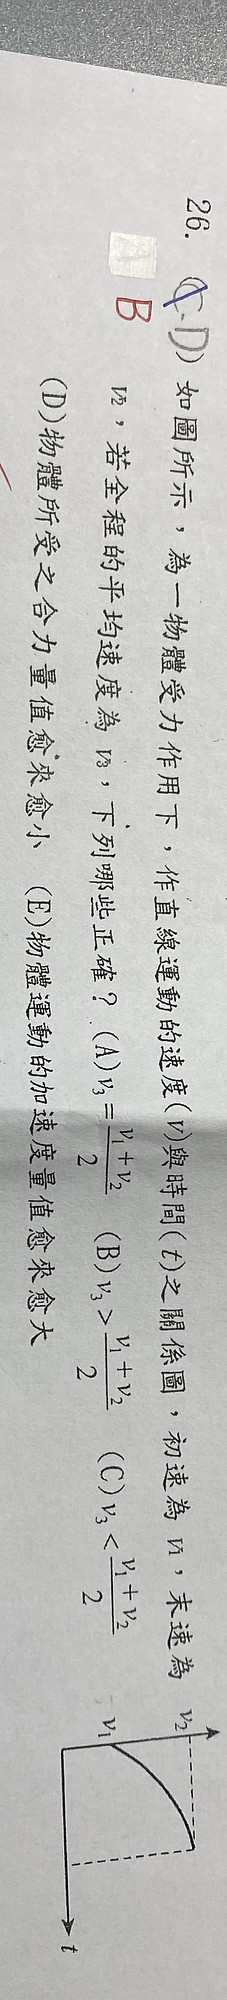 26. (C.D) 如圖所示，為一物體受力作用下，作直線運動的速度(v)與時間(t)之關係圖，初速為 v₁，末速為
B v₂，若全程的平均速度為 v₃，下列哪些正確？(A)v₃=(v₁+v₂)/2 (B)v₃>(v₁+v₂)/2 (C)v₃<(v₁+v₂)/2
(D)物體所受之合力量值愈來愈小 (E)物體運動的加速度量值愈來愈大
v₂
v₁
t